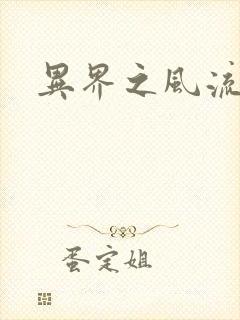 異界之風流
蛋定姐